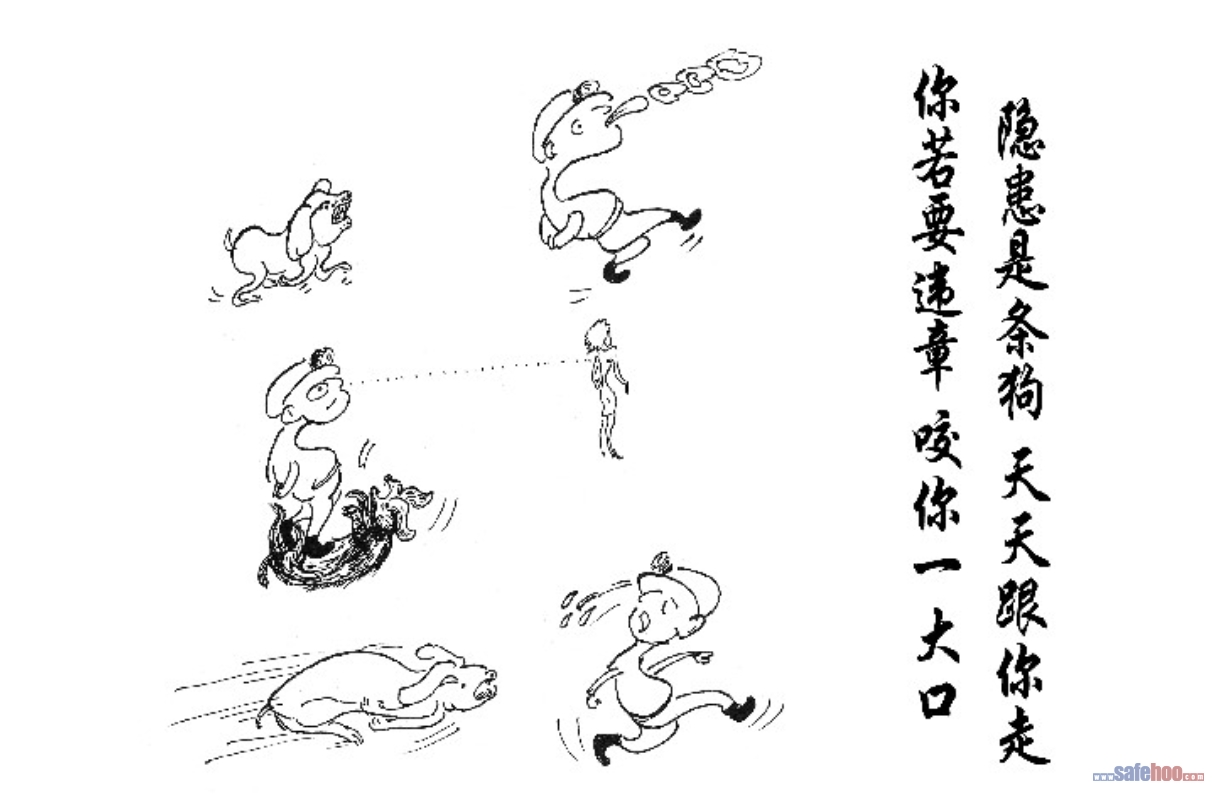 隐患是条狗 天天跟你走
你若要违章 咬你一大口
safehoo